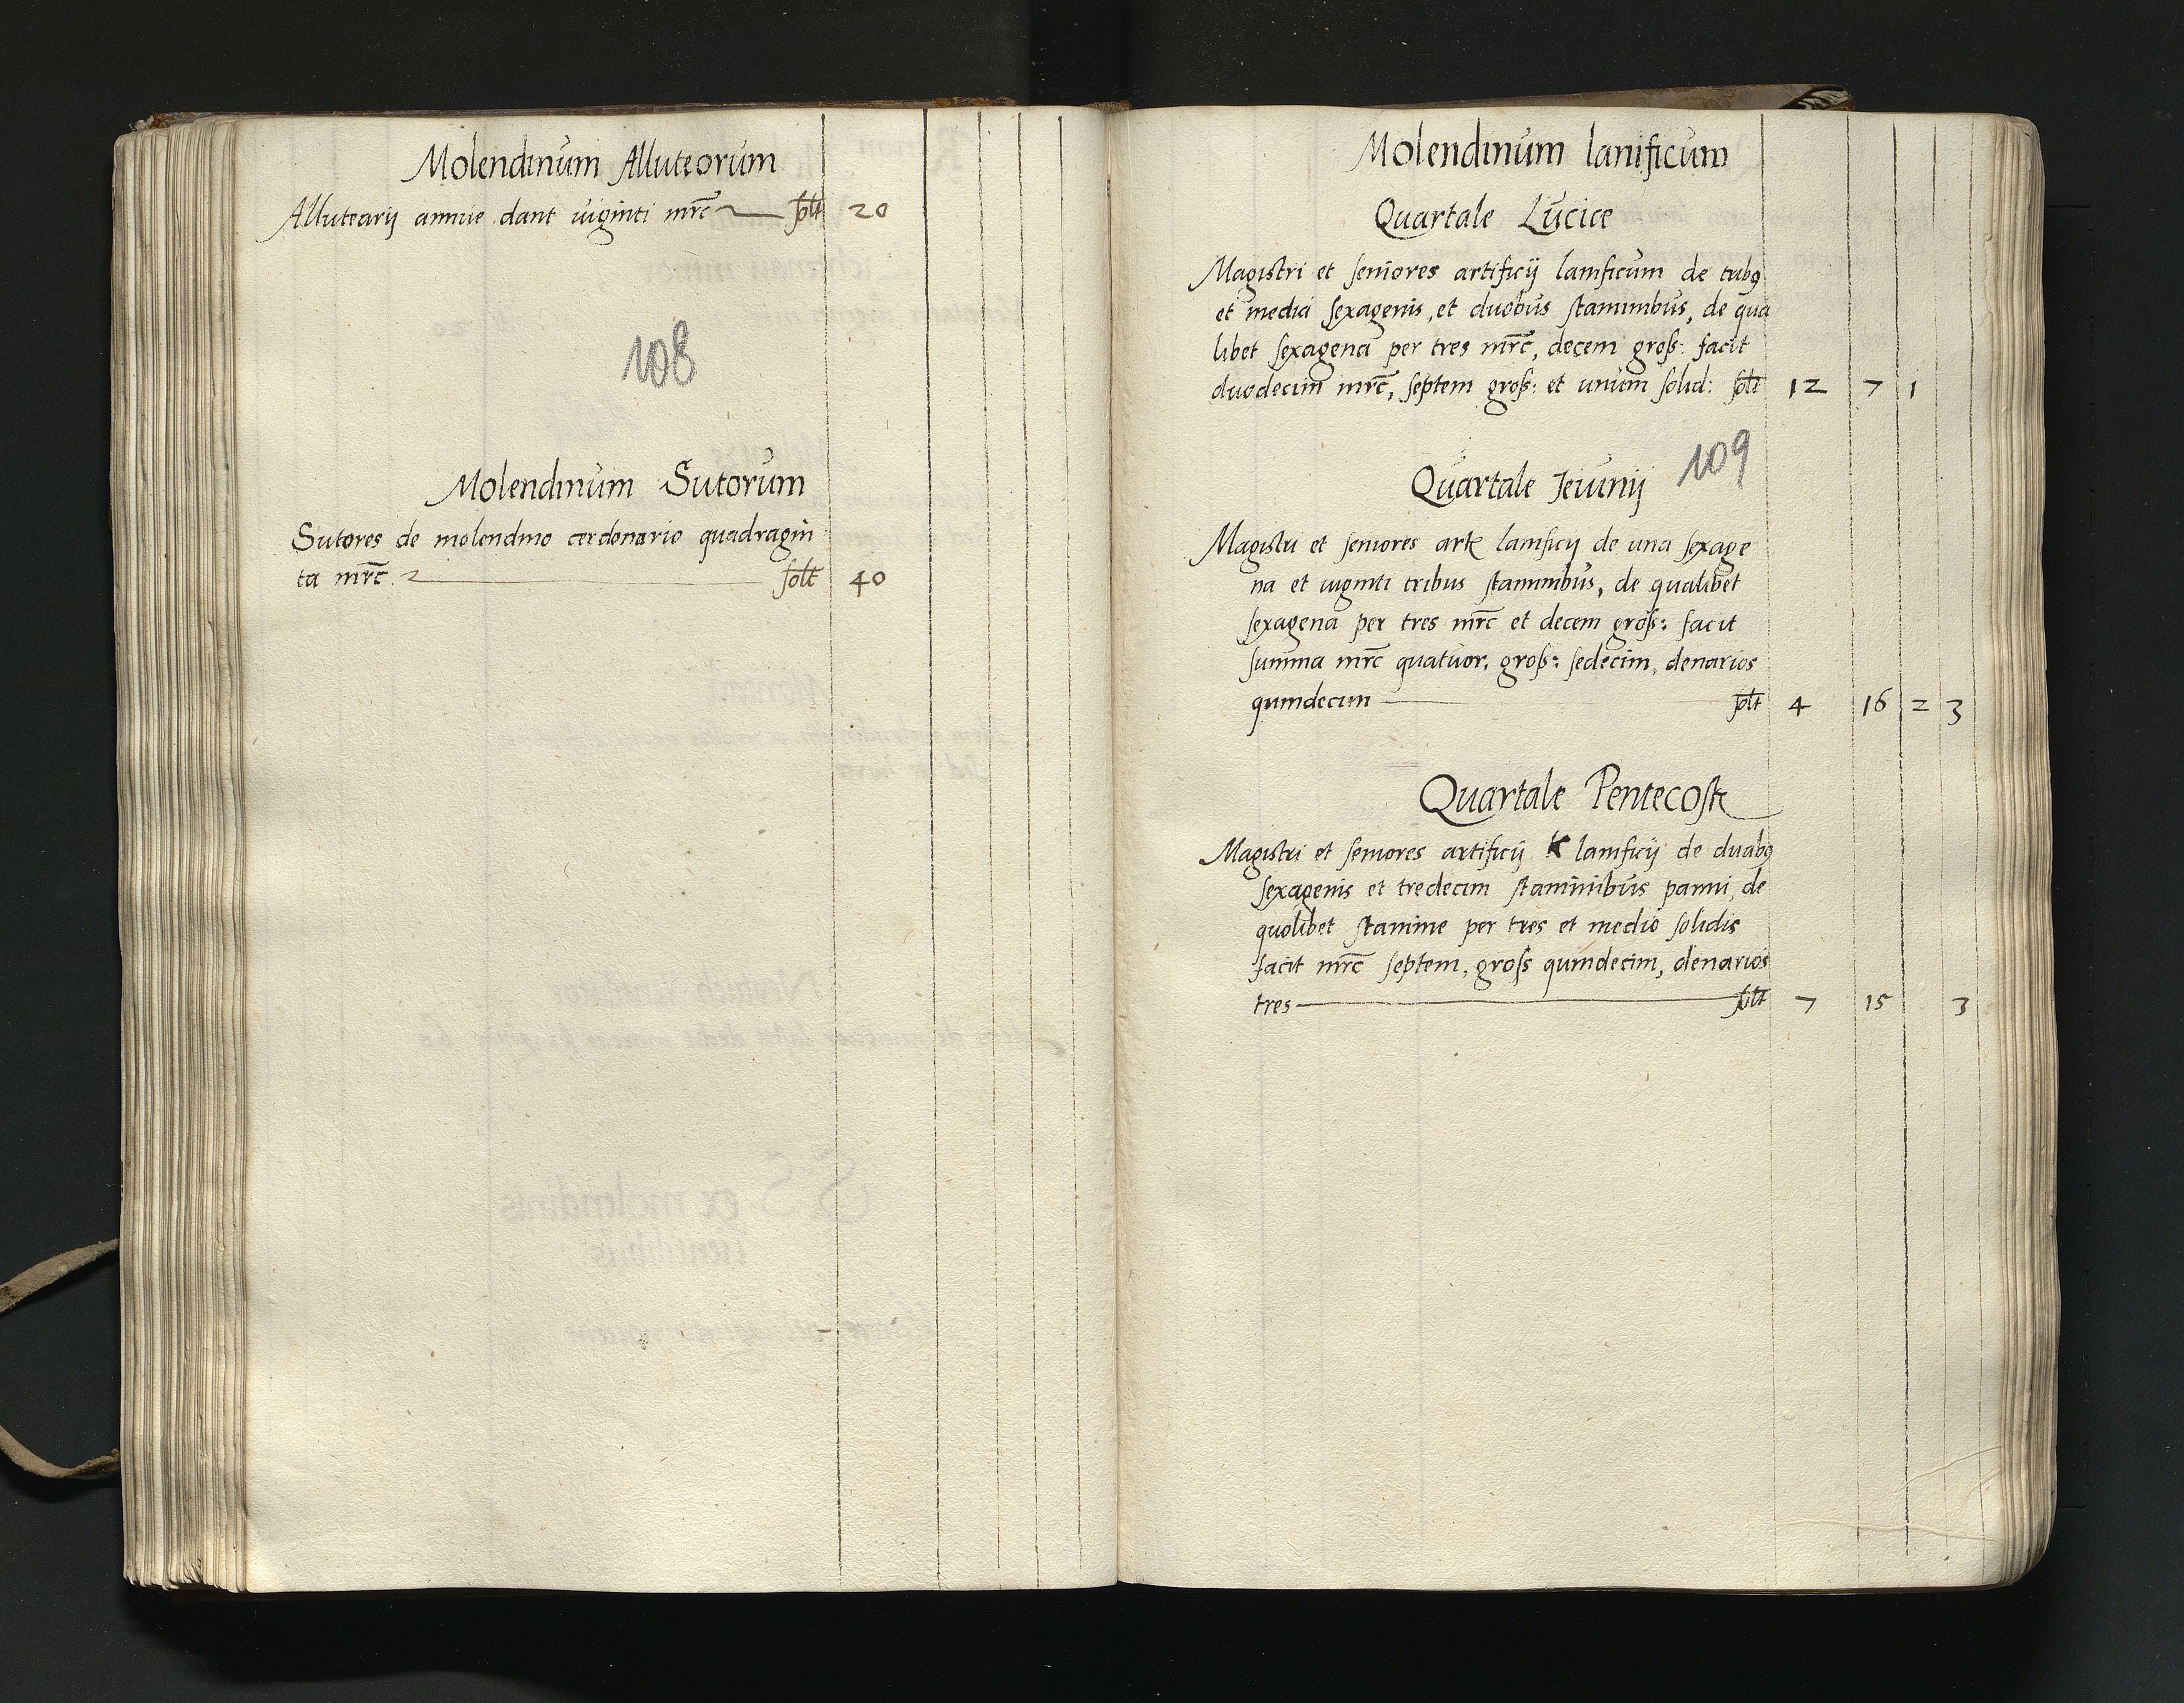 Molendinum Alluteorum
Allutearij annue dant viginti mrc solt 20
108
Molendinum Sutorum
Sutores de molendino cerdonario quadragin
ta mrc. solt 40
Molendinum lanificum
Quartale Lucice
Magistri et seniores artificij lanificum de tribq
et media sexagenis, et duobus staminibus, de qua
libet sexagena per tres mrc, decem gross: facit
duodecim mrc, septem gross: et unum solid: solt 12 7 1
109
Quartale Jeiunij
Magistri et seniores artis lanificij de una sexage
na et viginti tribus staminibus, de qualibet
sexagena per tres mrc et decem gross: facit
summa mrc quatuor, gross: sedecim, denarios
quindecim solt 4 16 2 3
Quartale Pentecostes
Magistri et seniores artificij lanificij de duabq
sexagenis et tredecim staminibus panni, de
quolibet stamine per tres et medio solidis
facit mrc septem, gross quindecim, denarios
tres solt 7 15 3